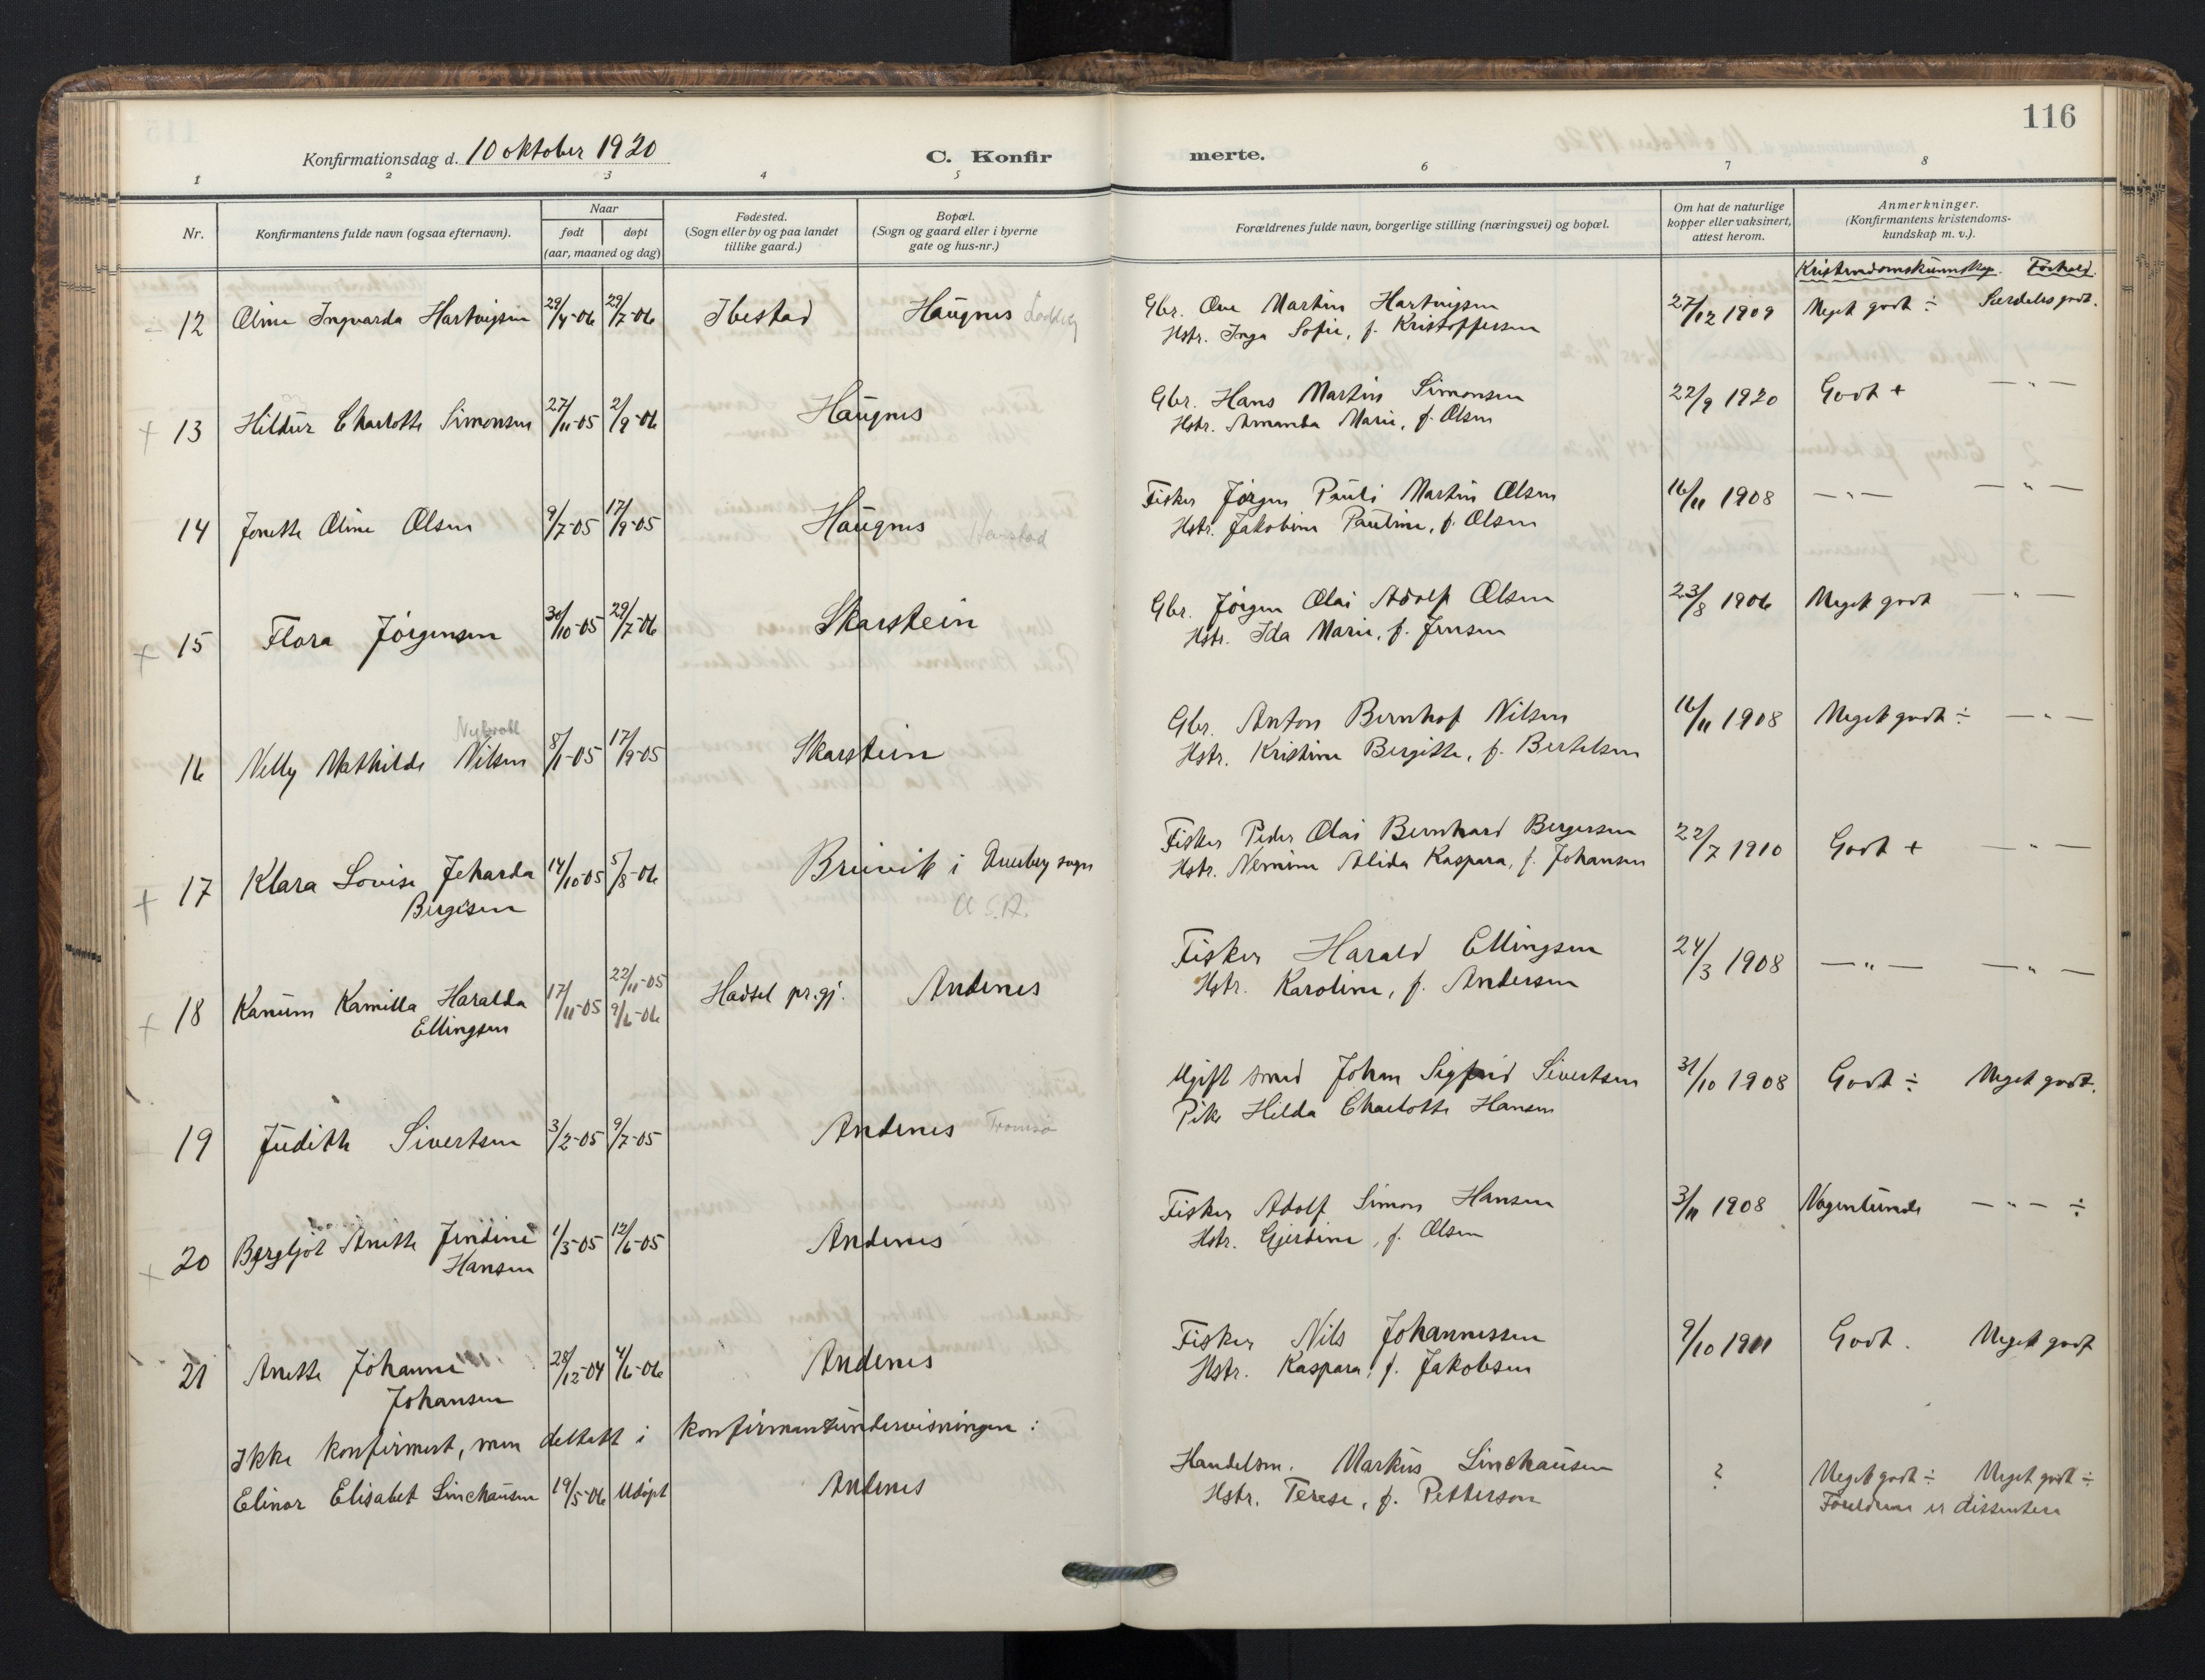 116
Konfirmationsdag d. 10 oktober 1920
C. Konfir merte.
1 2 3 4 5 6 7 8
Nr.
Konfirmantens fulde navn (ogsaa efternavn).
Naar
født døpt
(aar, maaned og dag)
Fødested.
(Sogn eller by og paa landet
tillike gaard.)
Bopæl.
(Sogn og gaard eller i byerne
gate og hus-nr.)
Forældrenes fulde navn, borgerlige stilling (næringsvei) og bopæl.
Om hat de naturlige
kopper eller vaksinert,
attest herom.
Anmerkninger.
(Konfirmantens kristendoms-
kundskap m. v.).
Kristendomskunnskap. Forhold.
12 Oline Ingvarda Hartvigsen 29/4-06 29/7-06 Ibestad Haugnes
Gbr. Ove Martin Hartvigsen 27/12 1909 Meget godt ÷ Særdeles godt.
Hstr. Inga Sofie, f. Kristoffersen
+ 13 Hildur Charlotte Simonsen 27/11-05 2/9-06 Haugnes
Gbr. Hans Martin Simonsen 22/9 1920 Godt + — " —
Hstr. Amanda Marie, f. Olsen
14 Jonette Oline Olsen 9/7-05 17/9-05 Haugnes
Fisker Jørgen Pauli Martin Olsen 16/11 1908 — " — — " —
Hstr. Jakobine Pauline, f. Olsen
+ 15 Flora Jørgensen 30/10-05 29/7-06 Skarstein
Gbr. Jørgen Olai Adolf Olsen 23/8 1906 Meget godt — " —
Hstr. Ida Marie, f. Jensen
16 Nelly Mathilde Nilsen 8/1-05 17/9-05 Skarstein
Gbr. Anton Bernhof Nilsen 16/11 1908 Meget godt ÷ — " —
Hstr. Kristine Bergitte, f. Bertelsen
+ 17 Klara Lovise Jeharda 14/10-05 5/8-06 Breivik i Dverberg sogn
Bergersen
U.S.A.
Fisker Peder Olai Bernhard Bergersen 22/7 1910 Godt + — " —
Hstr. Nemine Alida Kaspara, f. Johansen
+ 18 Kanum Kamilla Haralda 17/11-05 22/11-05 9/6-06 Hadsel pr.gj. Andenes
Ellingsen
Fisker Harald Ellingsen 24/3 1908 — " — — " —
Hstr. Karoline, f. Andersen
19 Judith Sivertsen 3/2-05 9/7-05 Andenes Tromsø
Ugift smed Johan Sigfrid Sivertsen 31/10 1908 Godt ÷ Meget godt.
Pike Hilda Charlotte Hansen
+ 20 Bergljot Anette Jendine 1/3-05 12/6-05 Andenes
Hansen
Fisker Adolf Simon Hansen 3/11 1908 Nogenlunde — " — ÷
Hstr. Gjerdine, f. Olsen
21 Anette Johanne 28/12-04 4/6-06 Andenes
Johansen
Fisker Nils Johannessen 9/10 1911 Godt. Meget godt
Hstr. Kaspara, f. Jakobsen
Ikke konfirmert, men deltatt i konfirmantundervisningen:
Elinor Elisabet Linchausen 19/5-06 Udøpt Andenes
Handelsm. Markus Linchausen ? Meget godt ÷ Meget godt ÷
Hstr. Terese, f. Petterson Foreldrene er dissentere